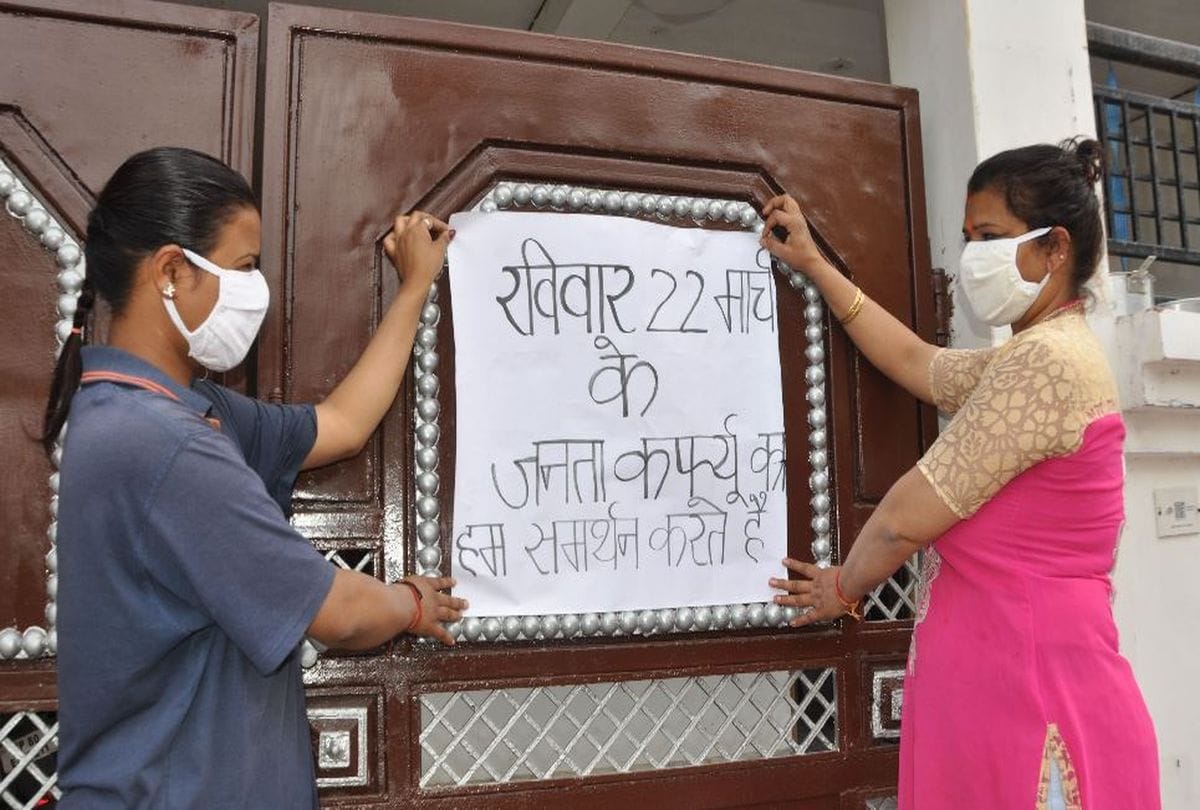 रविवार 22 मार्च
के
जनता कर्फ्यू का
हम समर्थन करते हैं